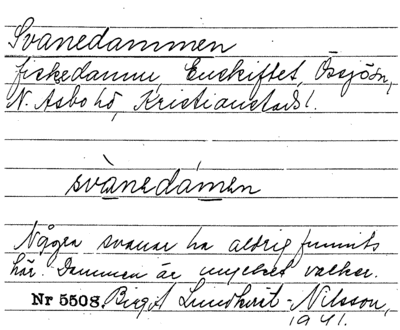 Svanedammen
fiskedamm, Enskiftet, Össjö sn,
N. Åsbo hd, Kristianstads l.
svànedámen
Några svanar ha aldrig funnits
här. Dammen är mycket vacker.
Nr 5508. Birgit Lundkvist-Nilsson,
1941.